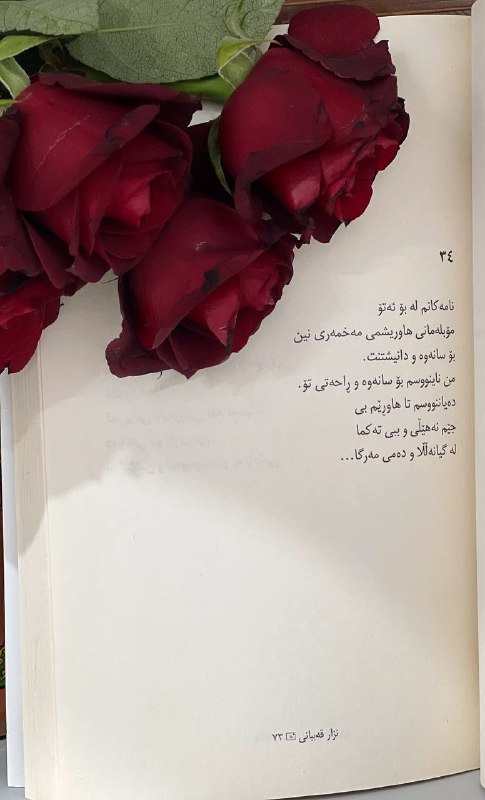 ٣٤
نامەکانم لە بۆ ئەتۆ
مۆبلەمانی هاوریشمی مەخمەری نین
بۆ سانەوە و دانیشتنت.
من ناینووسم بۆ سانەوە و ڕاحەتی تۆ.
دەیاننووسم تا هاوڕێم بی
جێم نەهێڵی و ببی تەکما
لە گیانەڵڵا و دەمی مەرگا...
نزار قەببانی ٧٣